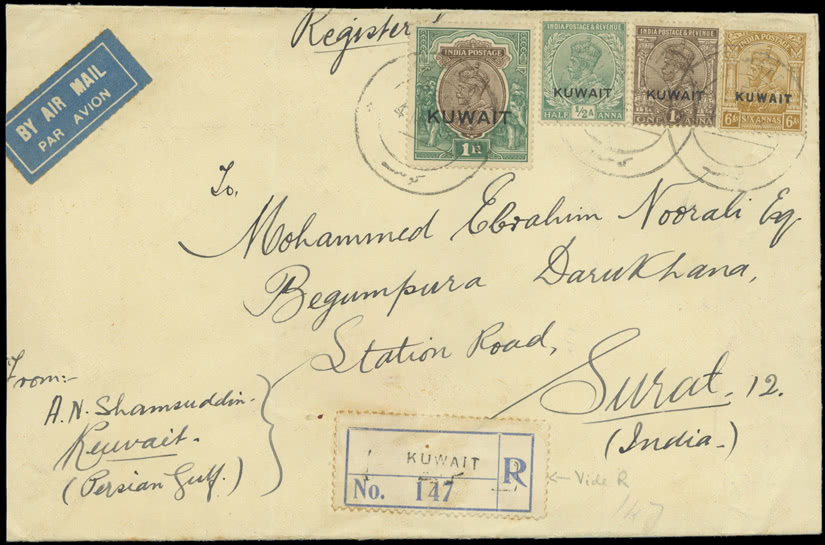 Register
BY AIR MAIL
PAR AVION
INDIA POSTAGE
KUWAIT
1R
INDIA POSTAGE & REVENUE
KUWAIT
HALF ½A ANNA
INDIA POSTAGE & REVENUE
KUWAIT
ONE 1A ANNA
INDIA POSTAGE & REVENUE
KUWAIT
6As SIX ANNAS 6As
To,
Mohammed Ebrahim Noorali Eq
Begumpura Darukhana,
Station Road,
Surat. 12.
(India.)
From:-
A.N. Shamsuddin.
Kuwait.
(Persian Gulf.)
KUWAIT
R
No. 147
← Vide R
147